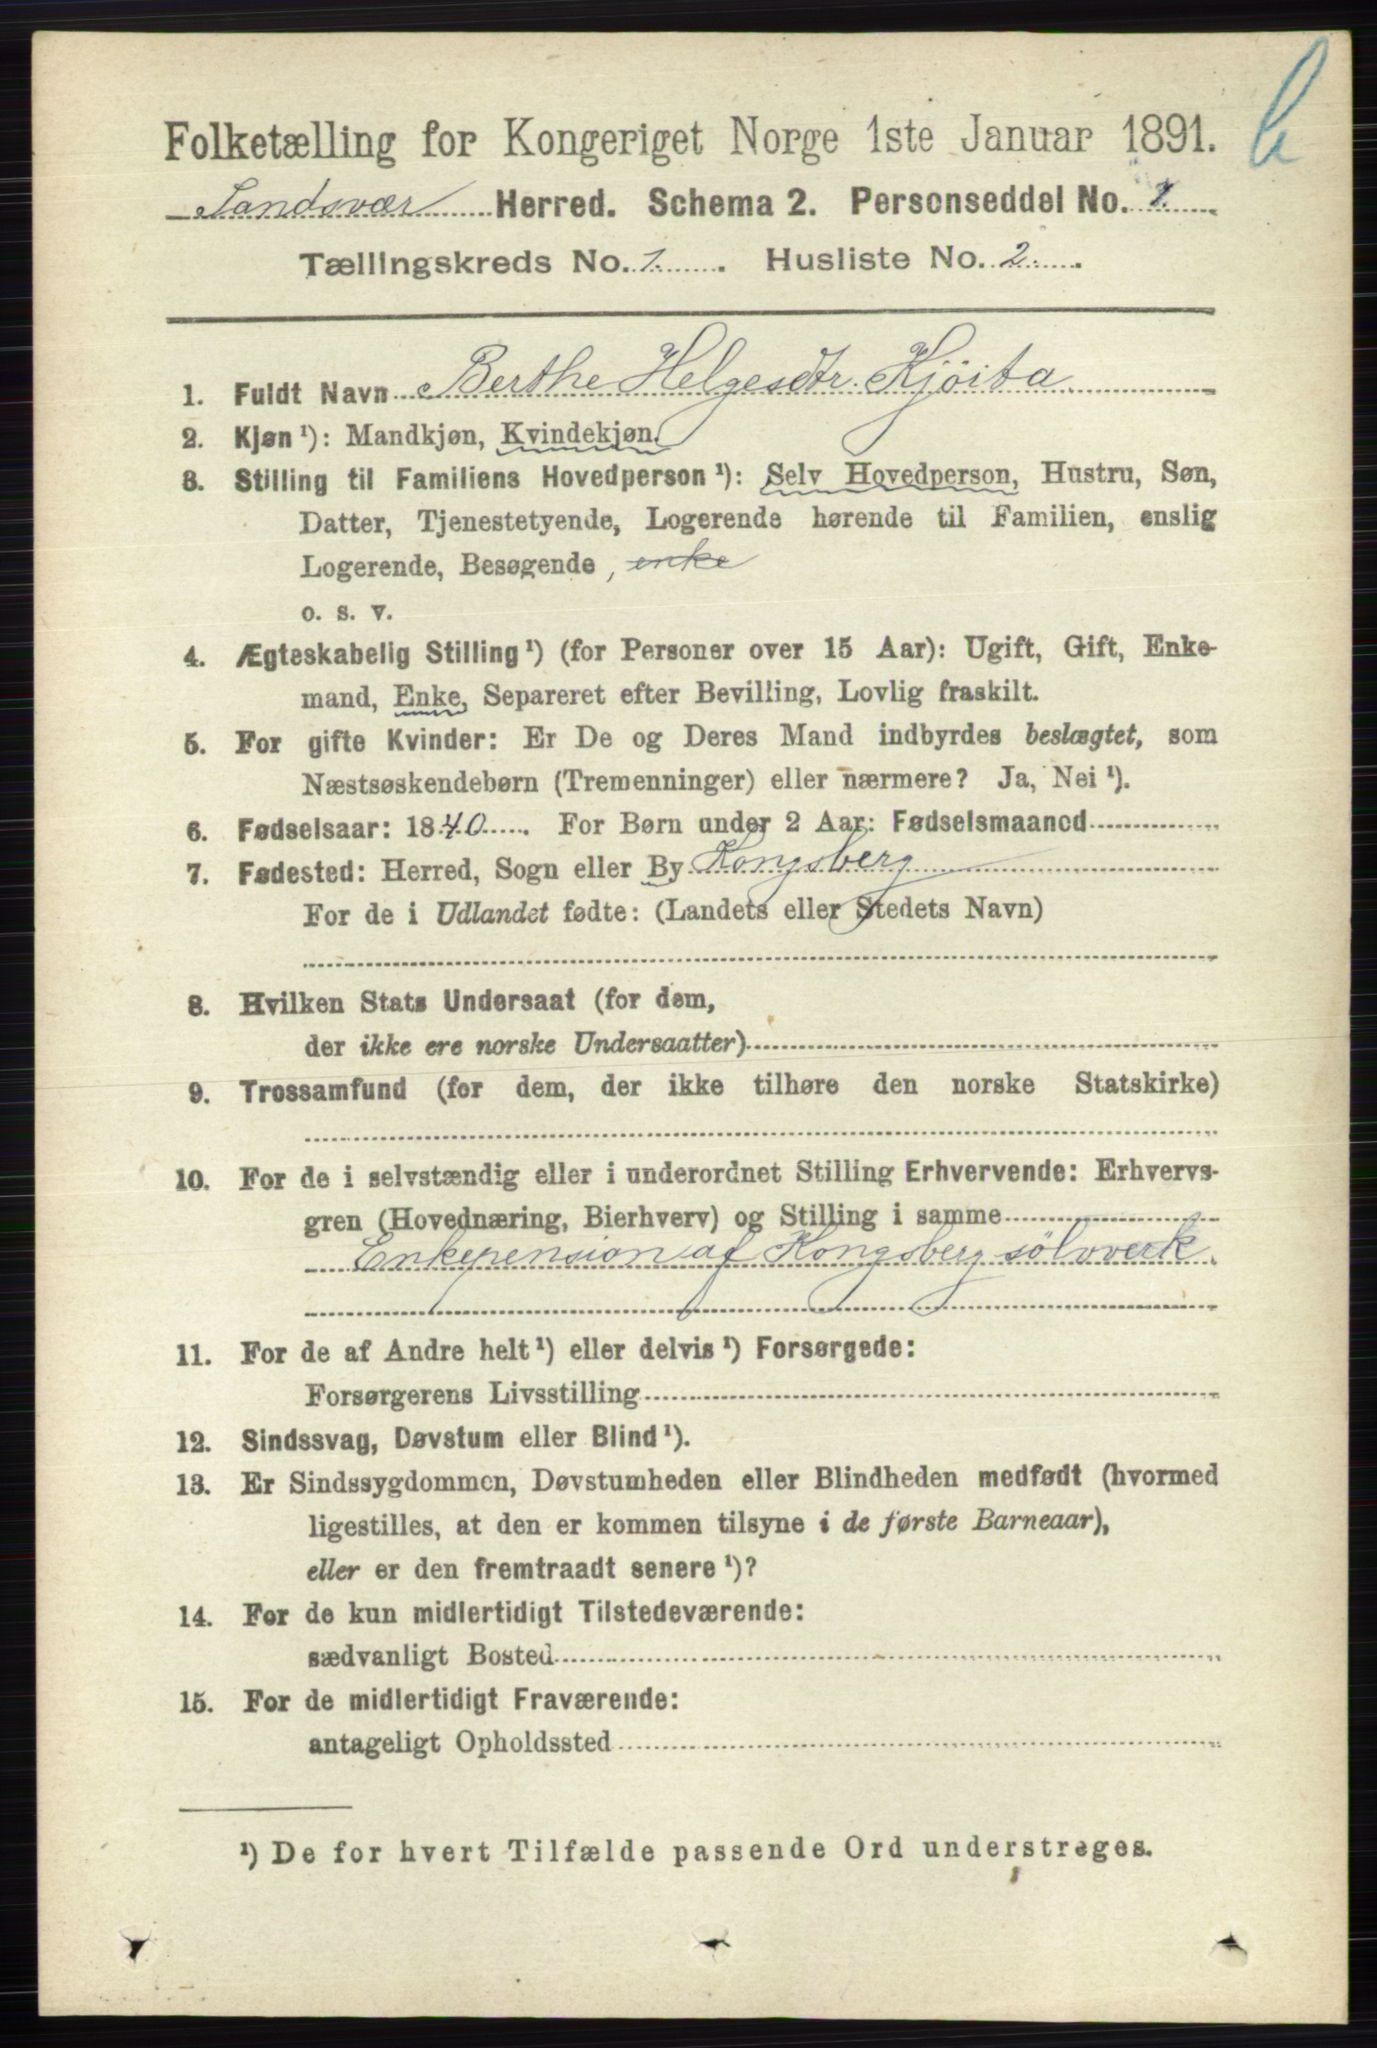 Folketælling for Kongeriget Norge 1ste Januar 1891.
Sandsvær Herred. Schema 2. Personseddel No. 1.
Tællingskreds No. 1. Husliste No. 2.
1. Fuldt Navn Berthe Helgesdtr. Kjöita
2. Kjøn ¹): Mandkjøn, Kvindekjøn.
3. Stilling til Familiens Hovedperson ¹): Selv Hovedperson, Hustru, Søn,
Datter, Tjenestetyende, Logerende hørende til Familien, enslig
Logerende, Besøgende, enke
o. s. v.
4. Ægteskabelig Stilling ¹) (for Personer over 15 Aar): Ugift, Gift, Enke-
mand, Enke, Separeret efter Bevilling, Lovlig fraskilt.
5. For gifte Kvinder: Er De og Deres Mand indbyrdes beslægtet, som
Næstsøskendebørn (Tremenninger) eller nærmere? Ja, Nei ¹).
6. Fødselsaar: 1840. For Børn under 2 Aar: Fødselsmaaned
7. Fødested: Herred, Sogn eller By Kongsberg
For de i Udlandet fødte: (Landets eller Stedets Navn)
8. Hvilken Stats Undersaat (for dem,
der ikke ere norske Undersaatter)
9. Trossamfund (for dem, der ikke tilhøre den norske Statskirke)
10. For de i selvstændig eller i underordnet Stilling Erhvervende: Erhvervs-
gren (Hovednæring, Bierhverv) og Stilling i samme
Enkepension af Kongsberg sölvverk
11. For de af Andre helt ¹) eller delvis ¹) Forsørgede:
Forsørgerens Livsstilling
12. Sindssvag, Døvstum eller Blind ¹).
13. Er Sindssygdommen, Døvstumheden eller Blindheden medfødt (hvormed
ligestilles, at den er kommen tilsyne i de første Barneaar),
eller er den fremtraadt senere ¹)?
14. For de kun midlertidigt Tilstedeværende:
sædvanligt Bosted
15. For de midlertidigt Fraværende:
antageligt Opholdssted
¹) De for hvert Tilfælde passende Ord understreges.